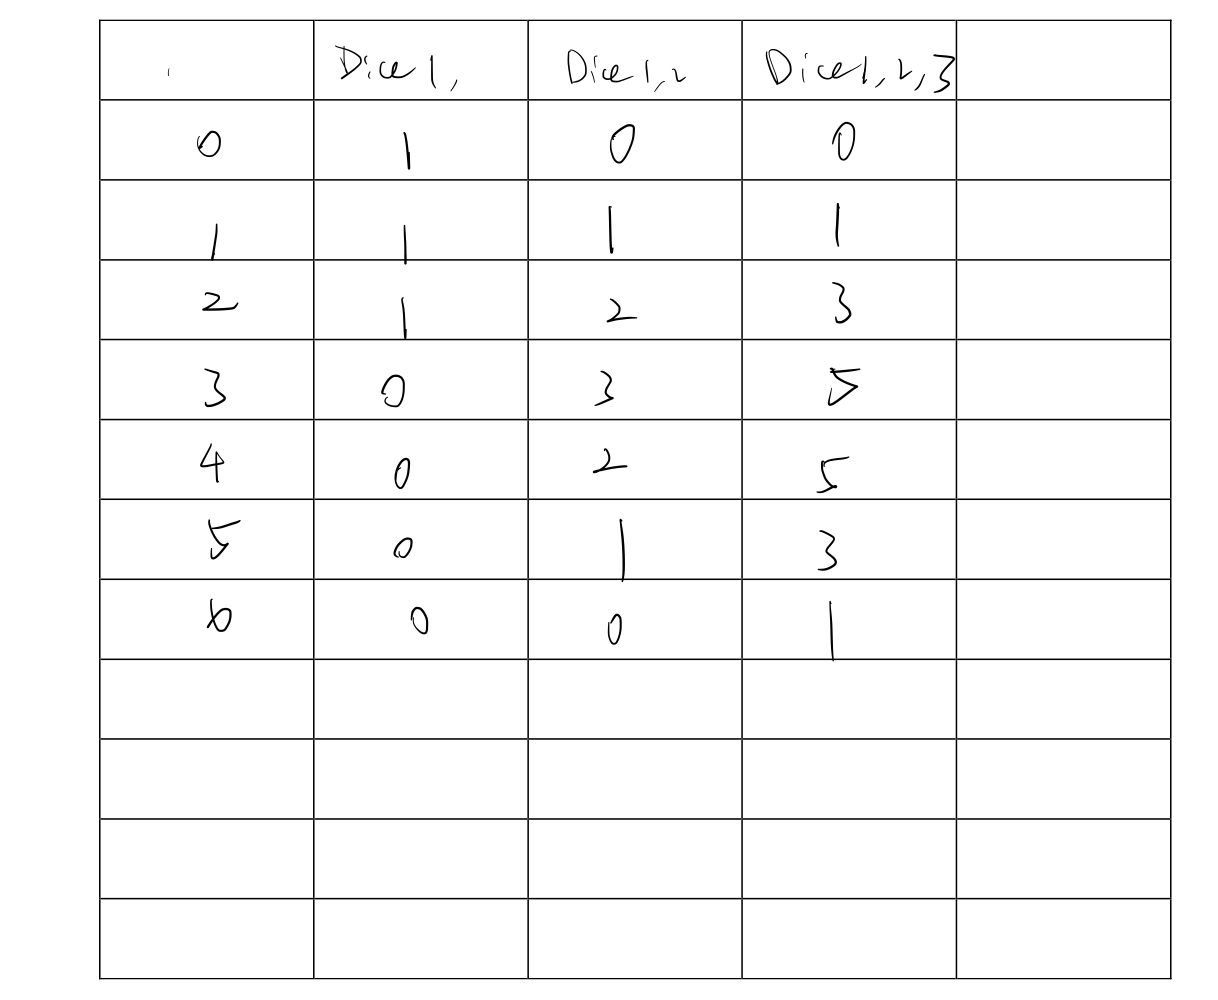 Dice 1, Dice 1,2 Dice 1,2,3
0 1 0 0
1 1 1 1
2 1 2 3
3 0 3 5
4 0 2 5
5 0 1 3
6 0 0 1